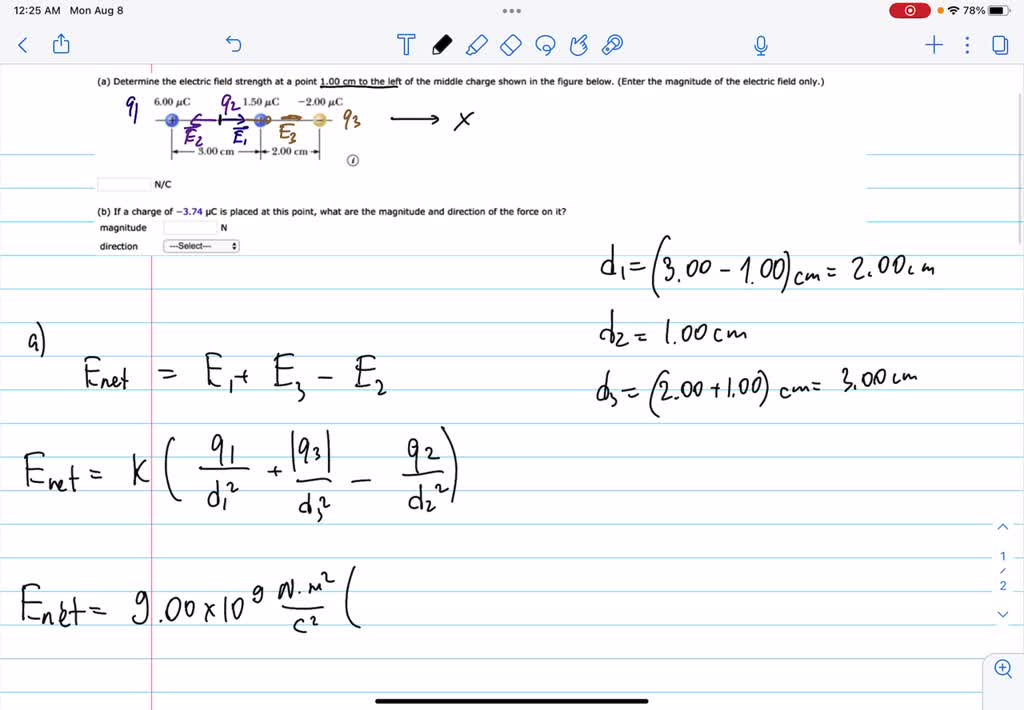 12:25 AM Mon Aug 8
78%
(a) Determine the electric field strength at a point 1.00 cm to the left of the middle charge shown in the figure below. (Enter the magnitude of the electric field only.)
q1 6.00 μC q2 1.50 μC −2.00 μC q3
E2 E1 E3 → X
3.00 cm 2.00 cm
i
N/C
(b) If a charge of −3.74 μC is placed at this point, what are the magnitude and direction of the force on it?
magnitude N
direction ---Select---
d1 = (3.00 − 1.00) cm = 2.00 cm
d2 = 1.00 cm
d3 = (2.00 + 1.00) cm = 3.00 cm
a)
Enet = E1 + E3 − E2
Enet = K ( q1/d1² + |q3|/d3² − q2/d2² )
Enet = 9.00 × 10⁹ N·m²/C² (
1
/
2